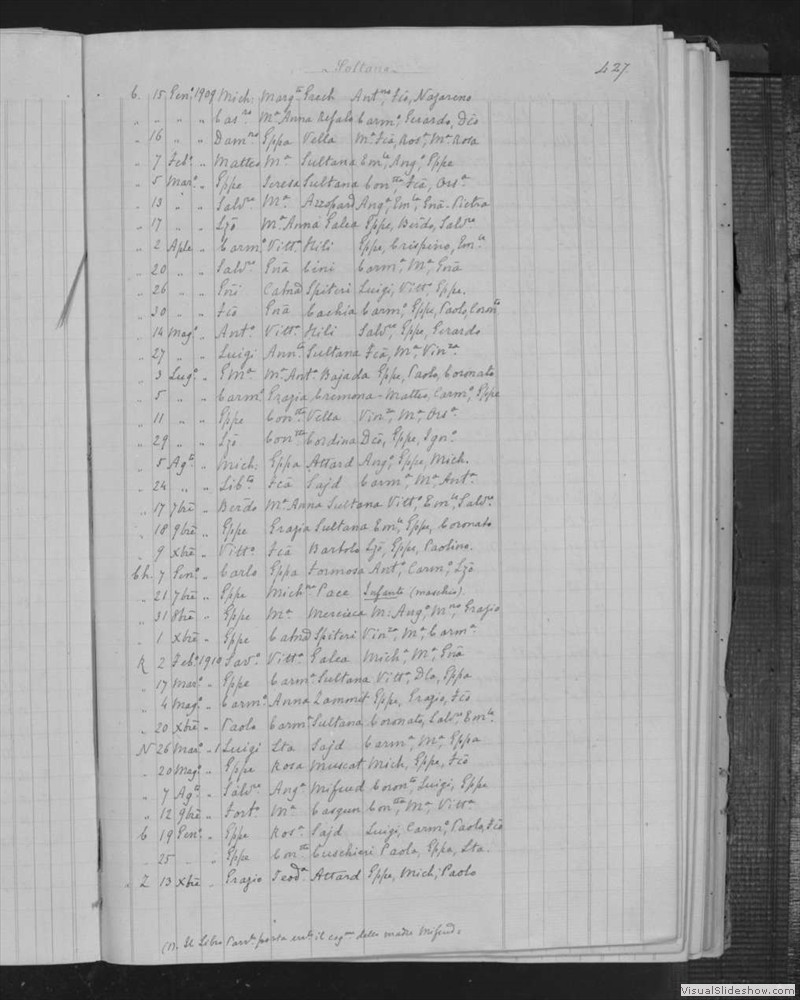 Soltana 427
C. 15 Genº 1909 Mich: Margta Grech Antneo, Fcº, Nazareno
" " " " Casro Mª Anna Refalo Carmº, Gerardo, Dcº
" 16 " " Damno Eppa Vella Mª Fcā, Rosª, Mª Rosa
" 7 Febº " Matteo Mª Sultana Emla, Angº, Eppe
" 5 Marº " Eppe Teresa Sultana Contta, Fcā, Orsª
" 13 " " Salvre Mª Azzopard Angª, Emla, Gnā-Pietra
" 17 " " Lzō Mª Anna Galea Eppe, Berdo, Salvre
" 2 Aple " Carmº Vittª Hili Eppe, Crispino, Emla
" 20 " " Salvre Gnā Cini Carmª, Mª, Gnā
" 26 " " Gñi Catnā Spiteri Luigi, Vittº, Eppe.
" 30 " " Fcō Gnā Cachia Carmº, Eppe, Paolo, Coronto
" 14 Magº " Antº Vittª Hili Salvre, Eppe, Gerardo
" 27 " " Luigi Annta Sultana Fcā, Mª, Vinza
" 3 Lugº " Gmª Mª Antª Bajada Eppe, Paolo, Coronato
" 5 " " Carmº Grazia Cremona - Matteo, Carmº, Eppe
" 11 " " Eppe Contta Vella Vinza, Mª, Orsª
" 29 " " Lzō Contta Cordina Dcō, Eppe, Ignº
" 5 Agto " Mich: Eppa Attard Angº, Eppe, Mich.
" 24 " " Libto Fcā Sajd Carmª, Mª, Antª
" 17 7brē " Berdo Mª Anna Sultana Vittº, Emle, Salvre
" 18 9brē " Eppe Grazia Sultana Emle, Eppe, Coronato
" 9 Xbrē " Vittº Fcā Bartolo Lzō, Eppe, Paolino.
Ch. 7 Genº " Carlo Eppa Formosa Antº, Carmº, Lzō
" 21 7brē " Eppe Michna Pace Infante (maschio).
" 31 8brē " Eppe Mª Mercieca M: Angº, Mno, Grazio
" 1 Xbrē " Eppe Catnā Spiteri Vinza, Mª, Carmª
K 2 Febº 1910 Savº Vittª Galea Michª, Mª, Gnā
" 17 Marº " Eppe Carmª Sultana Vittª, Dla, Eppa
" 4 Magº " Carmº Anna Zammit Eppe, Grazio, Fcō
" 20 Xbrē " Paolo Carmª Sultana Coronato, Salvre, Emle
N 26 Marº " 1 Luigi Lta Sajd Carmª, Mª, Eppa
" 20 Magº " Eppe Rosa Muscat Mich, Eppe, Fcō
" 7 Agto " Salvre Angª Mifsud Coronto, Luigi, Eppe
" 12 9brē " Fortº Mª Casgun Contta, Mª, Vittª
C 19 Genº " Eppe Rosª Sajd Luigi, Carmº, Paolo, Fcō
" 25 " " Eppe Contta Cuschieri Paola, Eppa, Lta.
" Z 13 Xbrē " Grazio Teodª Attard Eppe, Mich, Paolo
(1). Il Libro Parrle porta il cogme della madre Mifsud.
VisualSlideshow.com